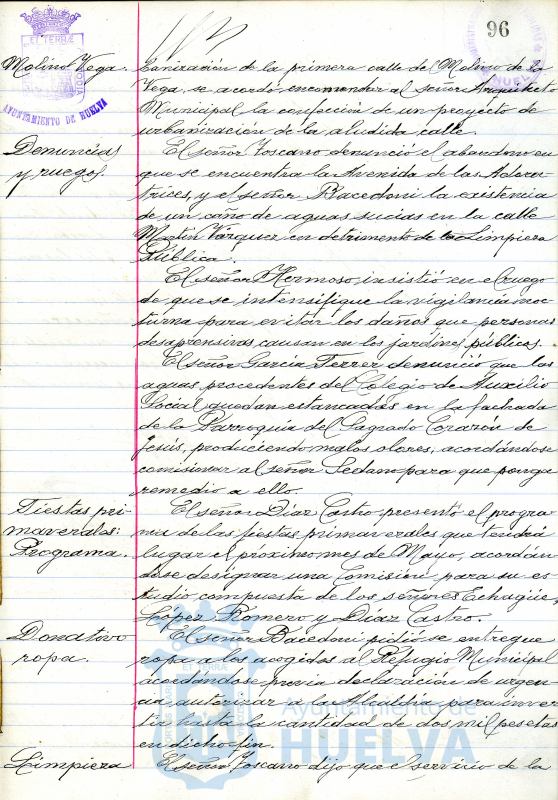 96
AYUNTAMIENTO DE HUELVA
HUELVA
Molino Vega. banización de la primera calle del Molino de la
Vega, se acordó encomendar al señor Arquitecto
Municipal la confección de un proyecto de
urbanización de la aludida calle.
Denuncias El señor Toscano denunció el abandono en
y ruegos. que se encuentra la Avenida de las Adora-
trices, y el señor Bacedoni la existencia
de un caño de aguas sucias en la calle
Martín Vázquez en detrimento de la Limpieza
Pública.
El señor Hermoso insistió en el ruego
de que se intensifique la vigilancia noc-
turna para evitar los daños que personas
desaprensivas causan en los jardines públicos.
El señor García Ferrer denunció que las
aguas procedentes del Colegio de Auxilio
Social quedan estancadas en la fachada
de la Parroquia del Sagrado Corazón de
Jesús, produciendo malos olores, acordándose
comisionar al señor Sedano para que ponga
remedio a ello.
Fiestas pri- El señor Díaz Castro presentó el progra-
maverales: ma de las fiestas primaverales que tendrá
Programa. lugar el próximo mes de Mayo, acordán-
dose designar una Comisión para su es-
tudio compuesta de los señores Echagüe,
López Romero y Díaz Castro.
Donativo El señor Bacedoni pidió se entregue
ropa. ropa a los acogidos al Refugio Municipal
acordándose previa declaración de urgen-
cia autorizar a la Alcaldía para inver-
tir hasta la cantidad de dos mil pesetas
en dicho fin.
Limpieza El señor Toscano dijo que el servicio de la
Ayuntamiento de
HUELVA